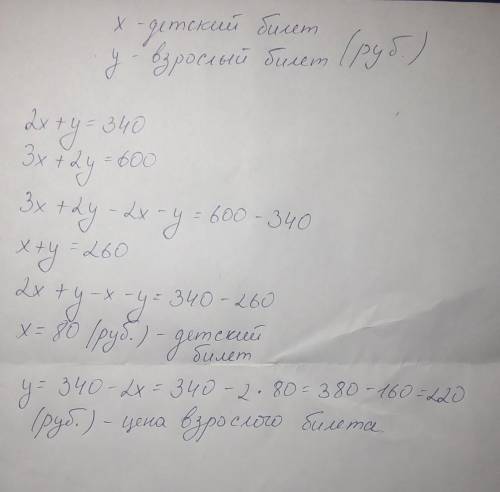 x - детский билет
y - взрослый билет (руб.)
2x + y = 340
3x + 2y = 600
3x + 2y - 2x - y = 600 - 340
x + y = 260
2x + y - x - y = 340 - 260
x = 80 (руб.) - детский
билет
y = 340 - 2x = 340 - 2 · 80 = 380 - 160 = 220
(руб.) - цена взрослого билета